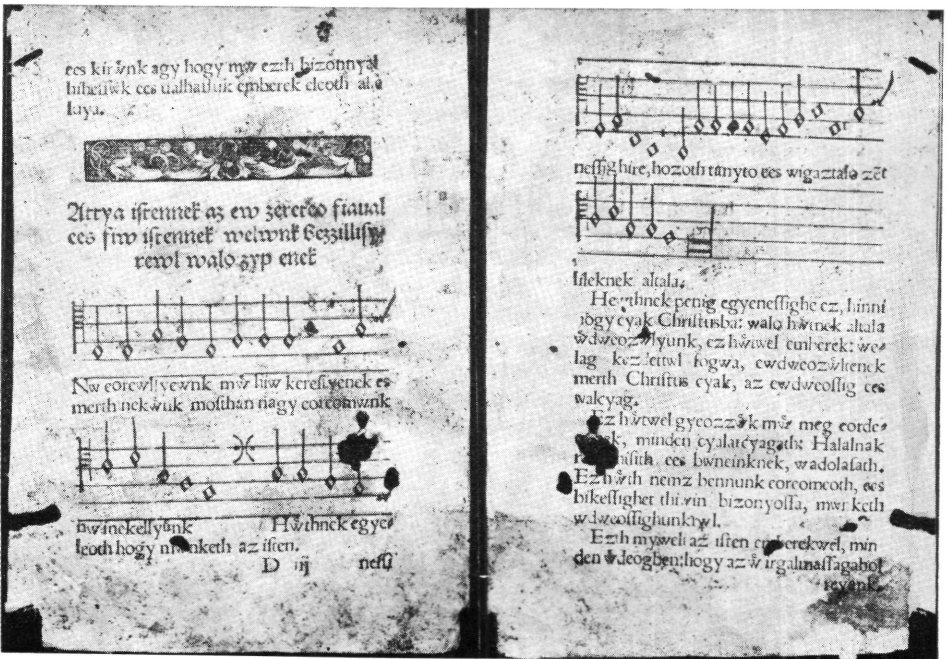 ees kirẘnk agy hogy mẘ ezth bizonnyal
hihessẘk ees ualhassuk emberek eleoth alle
luya.
Attya istennek az ew zerereo fiaual
ees fiw istennek welwnk
rewl walo zyp enek
Nw eorewllyewnk mẘ hiw keresstyenek es
merth nekẘnk mosthan nagy eoreomwnk
nẘ inekellyẘnk Hẘthnek egye-
leoth hogy nẘnketh az isten.
D iij nessi
nessighire, hozoth tanyto ees wigaztalo zēt
lileknek altala.
Hewthnek penig egyenessighe ez, hinni
hogy cyak Christusba: walo hẘtnek altala
ẘdweozẘlyunk, ez hẘtwel emberek: wo-
lag kezdettwl fogwa, ewdweozẘltenek
merth Christus cyak, az ewdweossig ees
walcyag.
Ez hẘtwel gyeozzẘk mẘ meg eorde-
minden cyalarcyagath: Halalnak
ees bwneinknek, wadolasath.
Ez hẘth nemz bennunk eoreomeoth, ees
bikessighet thiẘin bizonyossa, mwnketh
wdweossighunkrwl.
Ezth myweli az isten emberekwel, min
den ẘdeogben: hogy az ẘ irgalmassagabol